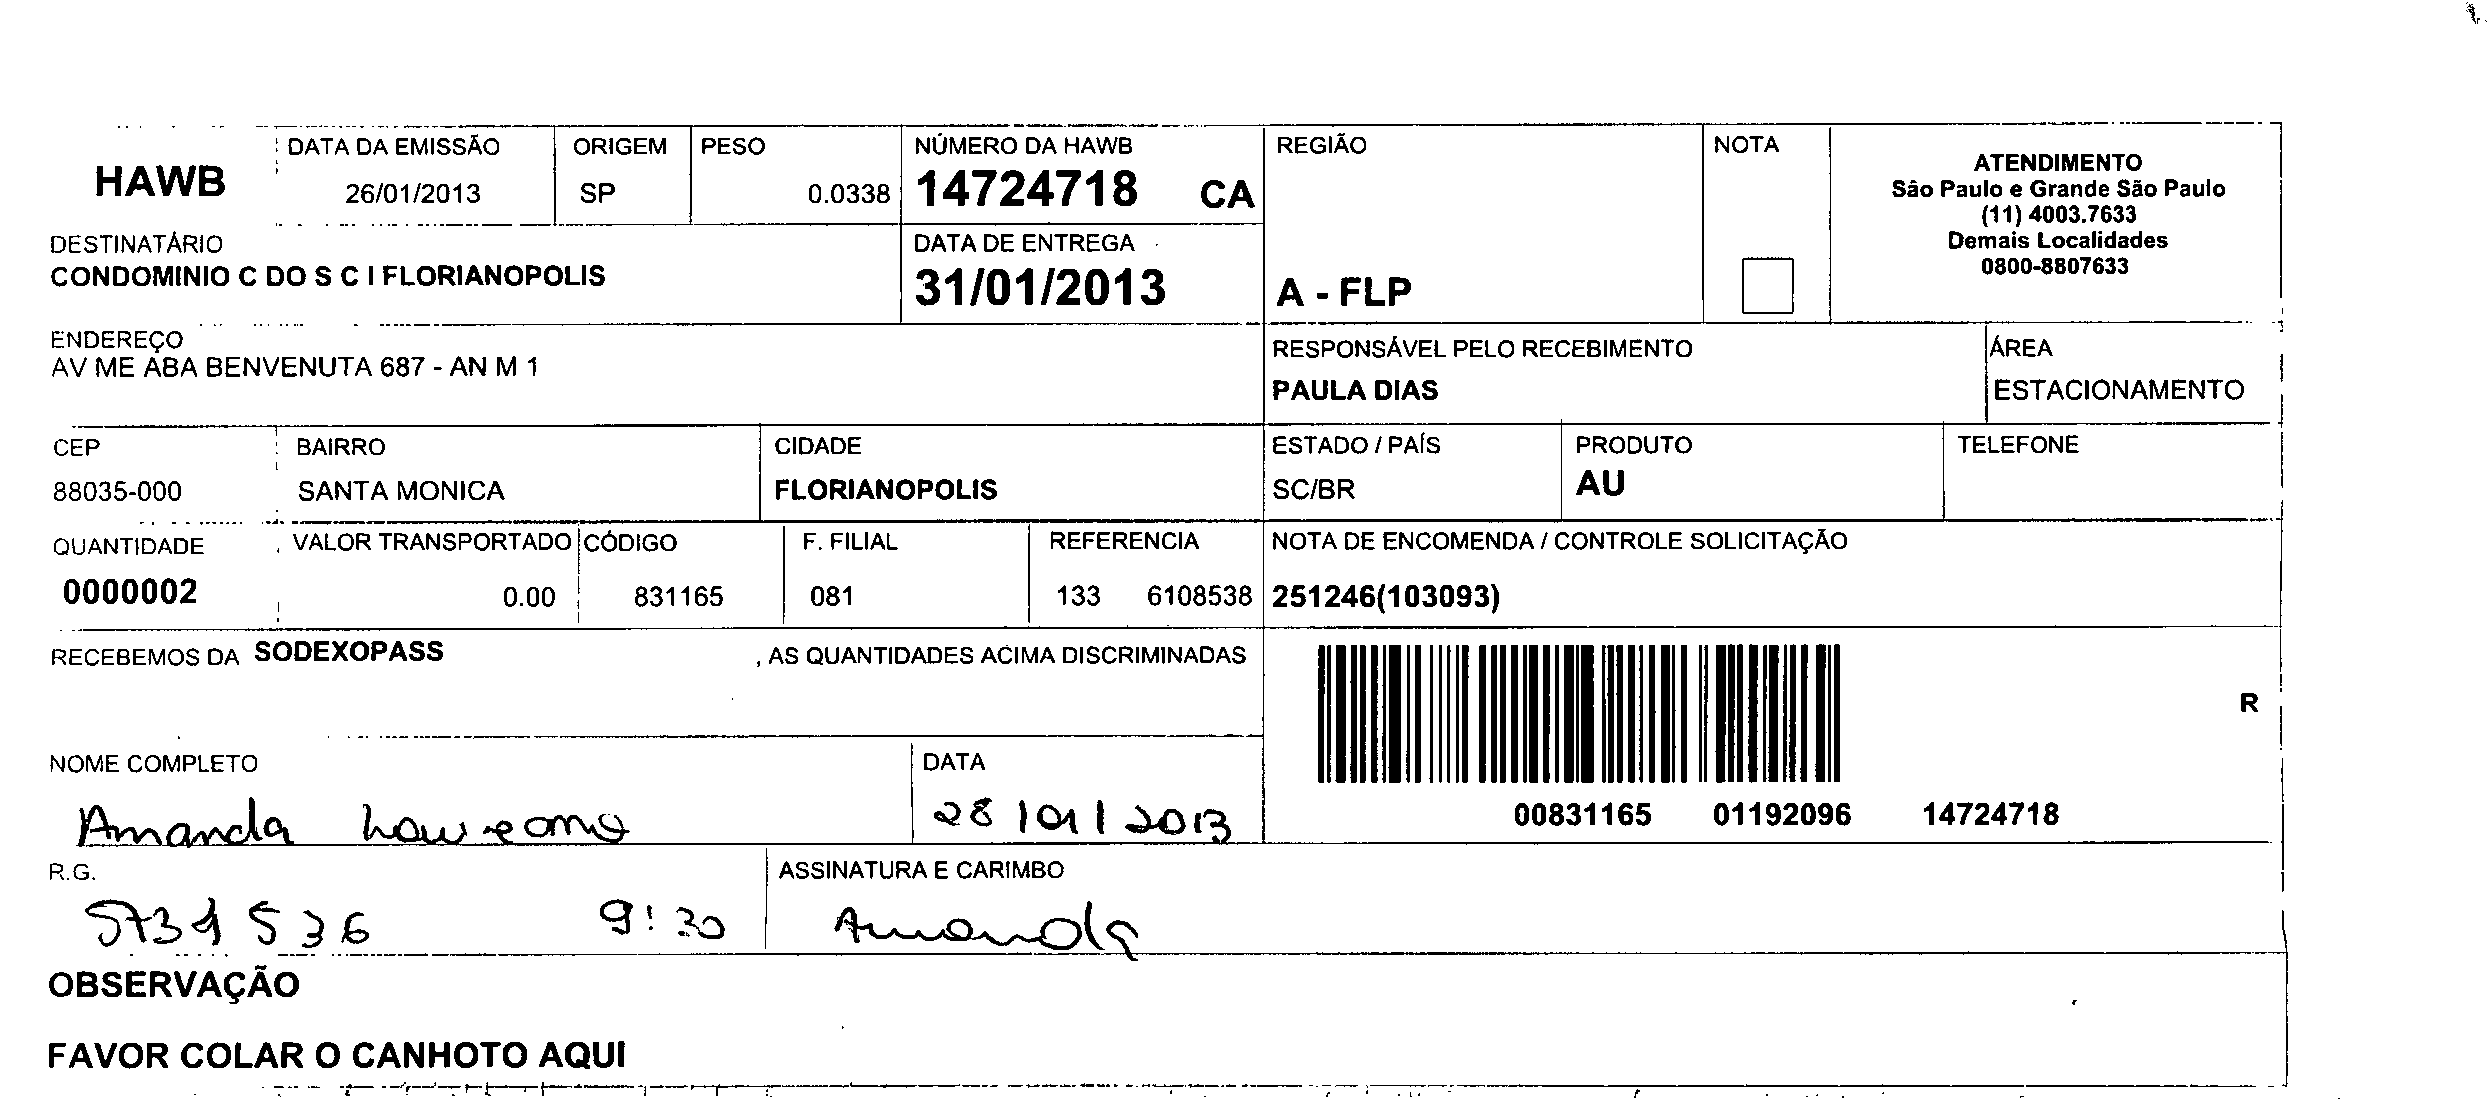 HAWB
DATA DA EMISSÃO
26/01/2013
ORIGEM
SP
PESO
0.0338
NÚMERO DA HAWB
14724718 CA
REGIÃO
A - FLP
NOTA
ATENDIMENTO
São Paulo e Grande São Paulo
(11) 4003.7633
Demais Localidades
0800-8807633
DESTINATÁRIO
CONDOMINIO C DO S C I FLORIANOPOLIS
DATA DE ENTREGA
31/01/2013
ENDEREÇO
AV ME ABA BENVENUTA 687 - AN M 1
RESPONSÁVEL PELO RECEBIMENTO
PAULA DIAS
ÁREA
ESTACIONAMENTO
CEP
88035-000
BAIRRO
SANTA MONICA
CIDADE
FLORIANOPOLIS
ESTADO / PAÍS
SC/BR
PRODUTO
AU
TELEFONE
QUANTIDADE
0000002
VALOR TRANSPORTADO
0.00
CÓDIGO
831165
F. FILIAL
081
REFERENCIA
133 6108538
NOTA DE ENCOMENDA / CONTROLE SOLICITAÇÃO
251246(103093)
RECEBEMOS DA SODEXOPASS , AS QUANTIDADES ACIMA DISCRIMINADAS
R
00831165 01192096 14724718
NOME COMPLETO
Amanda
DATA
28/01/2013
R.G.
9:30
ASSINATURA E CARIMBO
Amanda
OBSERVAÇÃO
FAVOR COLAR O CANHOTO AQUI